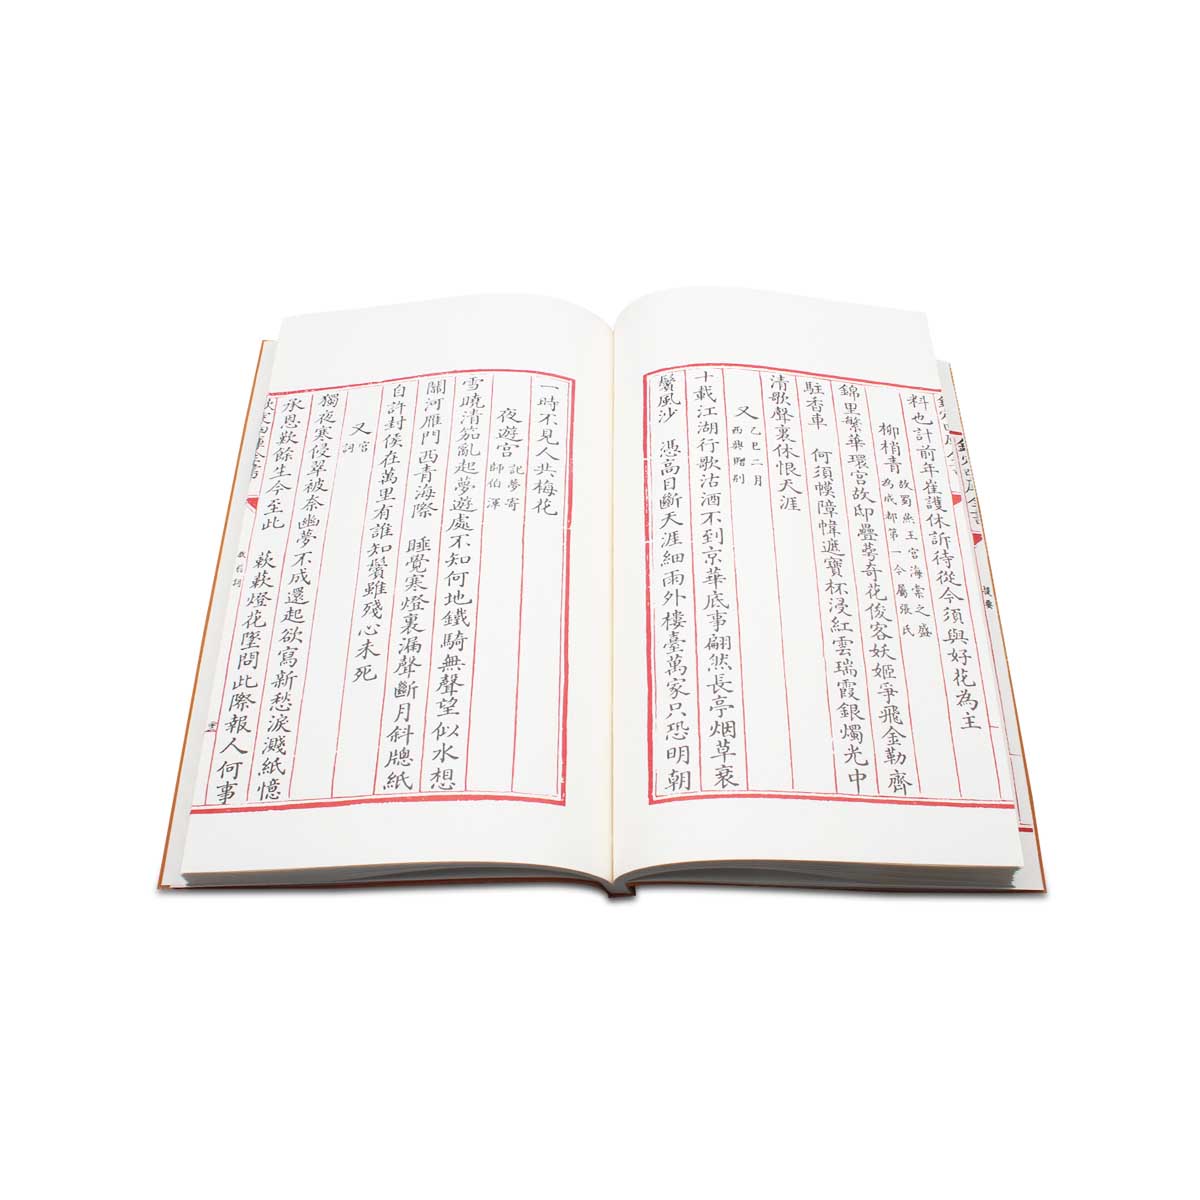 料也計前年崔護休訴待從今須與好花為主
柳梢青故蜀燕王宮海棠之盛
為成都第一今屬張氏
錦里繁華環宮故邸疊萼奇花俊客妖姬爭飛金勒齊
駐香車　何須幙障幃遮寶杯浸紅雲瑞霞銀燭光中
清歌聲裏休恨天涯
又乙巳二月
西興贈別
十載江湖行歌沽酒不到京華底事翩然長亭烟草衰
鬢風沙　憑高目斷天涯細雨外樓臺萬家只恐明朝
一時不見人共梅花
夜遊宮記夢寄
師伯渾
雪曉清笳亂起夢遊處不知何地鐵騎無聲望似水想
關河雁門西青海際　睡覺寒燈裏漏聲斷月斜牕紙
自許封侯在萬里有誰知鬢雖殘心未死
又宮
詞
獨夜寒侵翠被奈幽夢不成還起欲寫新愁淚濺紙憶
承恩歎餘生今至此　蔌蔌燈花墜問此際報人何事